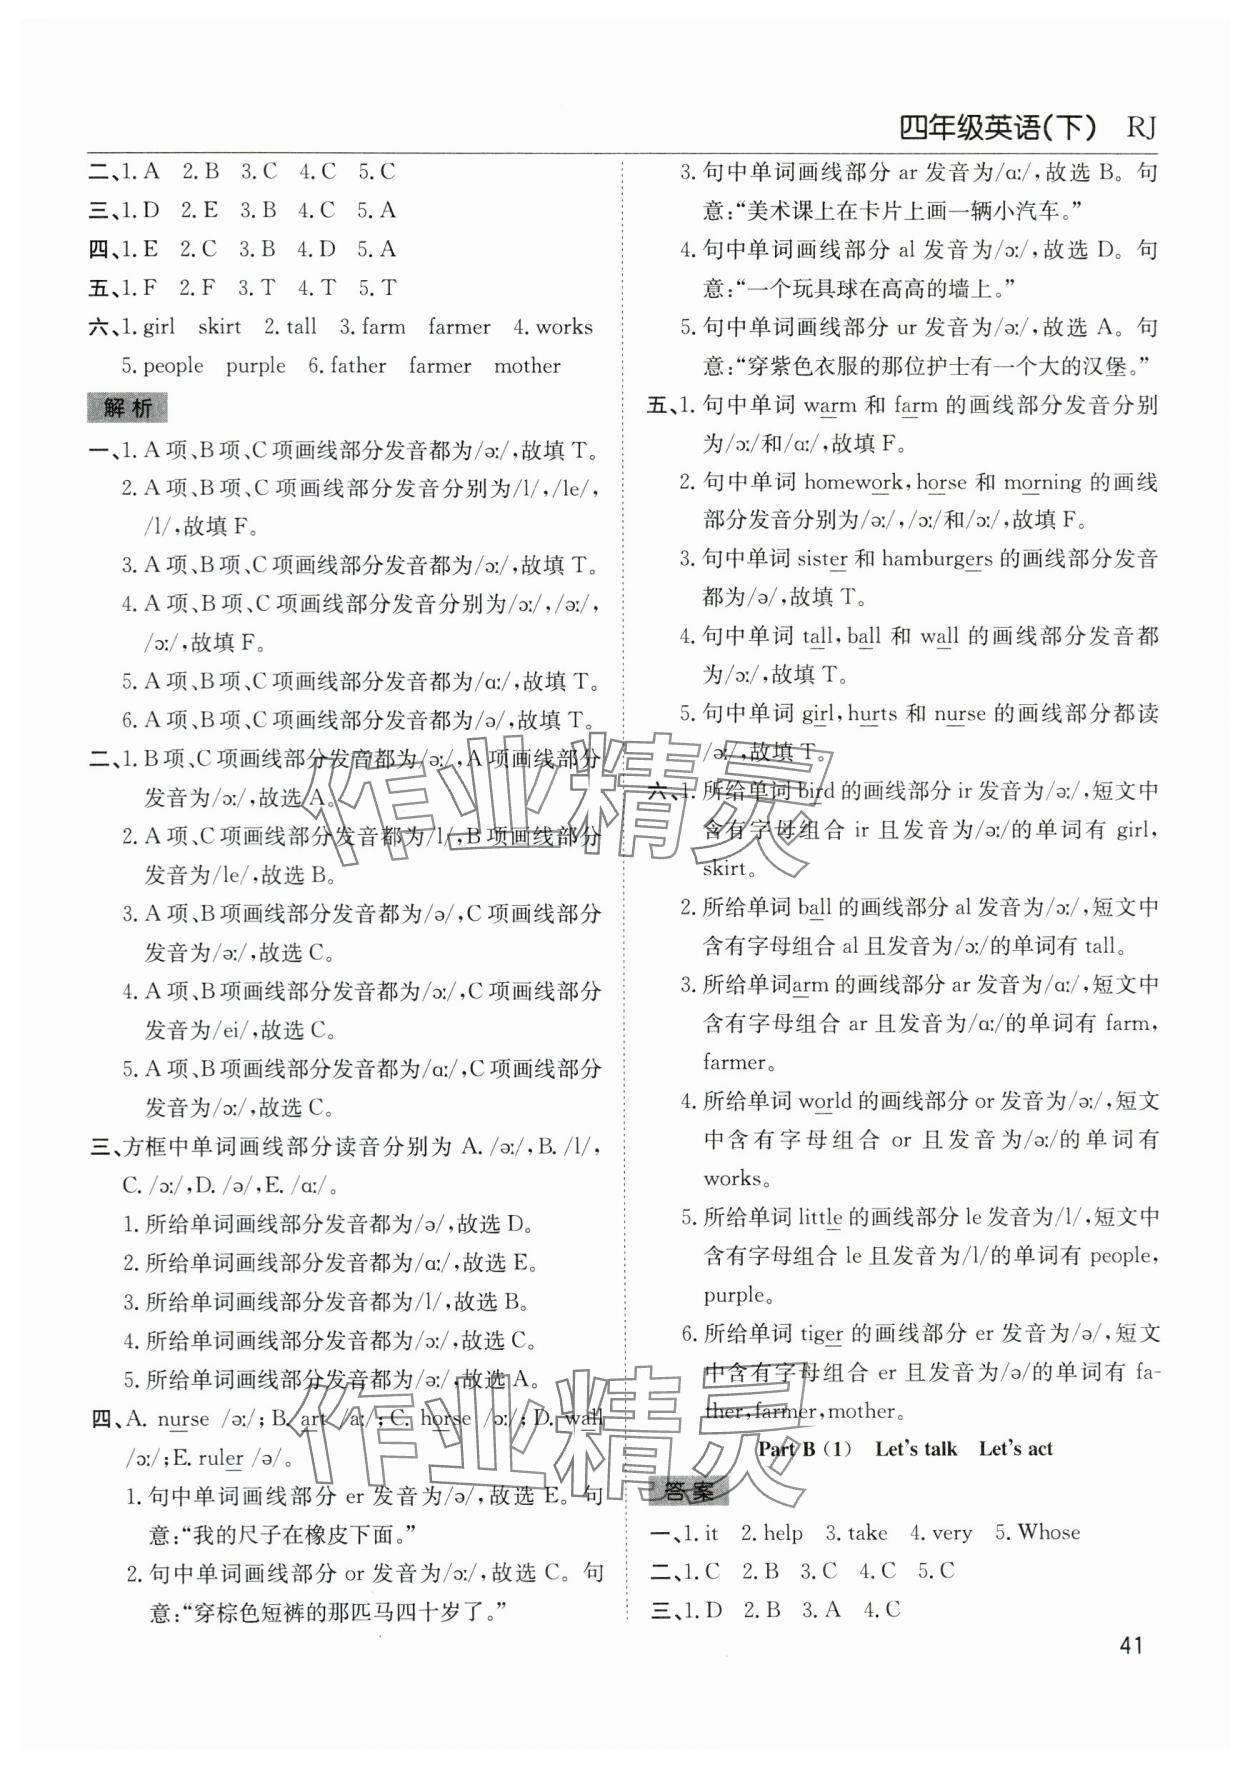 四年级英语(下) RJ
二、1. A 2. B 3. C 4. C 5. C
三、1. D 2. E 3. B 4. C 5. A
四、1. E 2. C 3. B 4. D 5. A
五、1. F 2. F 3. T 4. T 5. T
六、1. girl skirt 2. tall 3. farm farmer 4. works
5. people purple 6. father farmer mother
解析
一、1. A 项、B 项、C 项画线部分发音都为/ə:/,故填 T。
2. A 项、B 项、C 项画线部分发音分别为/l/,/le/,
/l/,故填 F。
3. A 项、B 项、C 项画线部分发音都为/ɔ:/,故填 T。
4. A 项、B 项、C 项画线部分发音分别为/ɔ:/,/ə:/,
/ɔ:/,故填 F。
5. A 项、B 项、C 项画线部分发音都为/ɑ:/,故填 T。
6. A 项、B 项、C 项画线部分发音都为/ə/,故填 T。
二、1. B 项、C 项画线部分发音都为/ə:/,A 项画线部分
发音为/ɔ:/,故选 A。
2. A 项、C 项画线部分发音都为/l/,B 项画线部分
发音为/le/,故选 B。
3. A 项、B 项画线部分发音都为/ə/,C 项画线部分
发音为/ə:/,故选 C。
4. A 项、B 项画线部分发音都为/ɔ:/,C 项画线部分
发音为/ei/,故选 C。
5. A 项、B 项画线部分发音都为/ɑ:/,C 项画线部分
发音为/ɔ:/,故选 C。
三、方框中单词画线部分读音分别为 A. /ə:/,B. /l/,
C. /ɔ:/,D. /ə/,E. /ɑ:/。
1. 所给单词画线部分发音都为/ə/,故选 D。
2. 所给单词画线部分发音都为/ɑ:/,故选 E。
3. 所给单词画线部分发音都为/l/,故选 B。
4. 所给单词画线部分发音都为/ɔ:/,故选 C。
5. 所给单词画线部分发音都为/ə:/,故选 A。
四、A. nurse /ə:/;B. art /ɑ:/;C. horse /ɔ:/;D. wall
/ɔ:/;E. ruler /ə/。
1. 句中单词画线部分 er 发音为/ə/,故选 E。句
意:“我的尺子在橡皮下面。”
2. 句中单词画线部分 or 发音为/ɔ:/,故选 C。句
意:“穿棕色短裤的那匹马四十岁了。”
3. 句中单词画线部分 ar 发音为/ɑ:/,故选 B。句
意:“美术课上在卡片上画一辆小汽车。”
4. 句中单词画线部分 al 发音为/ɔ:/,故选 D。句
意:“一个玩具球在高高的墙上。”
5. 句中单词画线部分 ur 发音为/ə:/,故选 A。句
意:“穿紫色衣服的那位护士有一个大的汉堡。”
五、1. 句中单词 warm 和 farm 的画线部分发音分别
为/ɔ:/和/ɑ:/,故填 F。
2. 句中单词 homework,horse 和 morning 的画线
部分发音分别为/ə:/,/ɔ:/和/ɔ:/,故填 F。
3. 句中单词 sister 和 hamburgers 的画线部分发音
都为/ə/,故填 T。
4. 句中单词 tall,ball 和 wall 的画线部分发音都
为/ɔ:/,故填 T。
5. 句中单词 girl,hurts 和 nurse 的画线部分都读
/ə:/,故填 T。
六、1. 所给单词 bird 的画线部分 ir 发音为/ə:/,短文中
含有字母组合 ir 且发音为/ə:/的单词有 girl,
skirt。
2. 所给单词 ball 的画线部分 al 发音为/ɔ:/,短文中
含有字母组合 al 且发音为/ɔ:/的单词有 tall。
3. 所给单词arm 的画线部分 ar 发音为/ɑ:/,短文中
含有字母组合 ar 且发音为/ɑ:/的单词有 farm,
farmer。
4. 所给单词 world 的画线部分 or 发音为/ə:/,短文
中含有字母组合 or 且发音为/ə:/的单词有
works。
5. 所给单词 little 的画线部分 le 发音为/l/,短文中
含有字母组合 le 且发音为/l/的单词有 people,
purple。
6. 所给单词 tiger 的画线部分 er 发音为/ə/,短文
中含有字母组合 er 且发音为/ə/的单词有 fa-
ther,farmer,mother。
Part B (1) Let's talk Let's act
答案
一、1. it 2. help 3. take 4. very 5. Whose
二、1. C 2. B 3. C 4. C 5. C
三、1. D 2. B 3. A 4. C
41
作业精灵
作业精灵